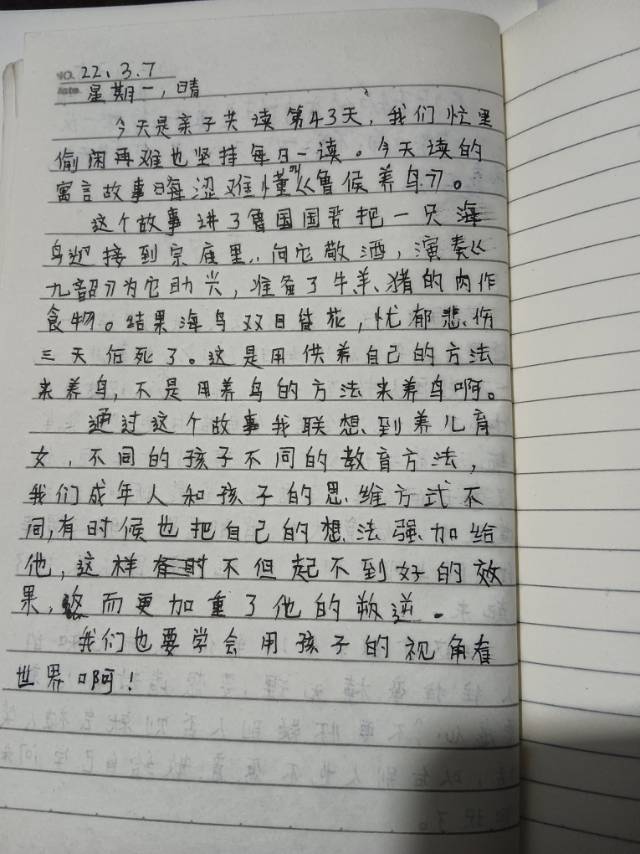 NO. 22.3.7
Date. 星期一,晴
今天是亲子共读第43天,我们忙里
偷闲再难也坚持每日一读。今天读的
寓言故事晦涩难懂叫《鲁侯养鸟》。
这个故事讲了鲁国国君把一只海
鸟迎接到宗庙里,向它敬酒,演奏《
九韶》为它助兴,准备了牛、羊、猪的肉作
食物。结果海鸟双目昏眩,忧郁悲伤
三天后死了。这是用供养自己的方法
来养鸟,不是用养鸟的方法来养鸟啊。
通过这个故事我联想到养儿育
女,不同的孩子不同的教育方法,
我们成年人和孩子的思维方式不
同,有时候也把自己的想法强加给
他,这样不但起不到好的效
果,而更加重了他的叛逆。
我们也要学会用孩子的视角看
世界啊!